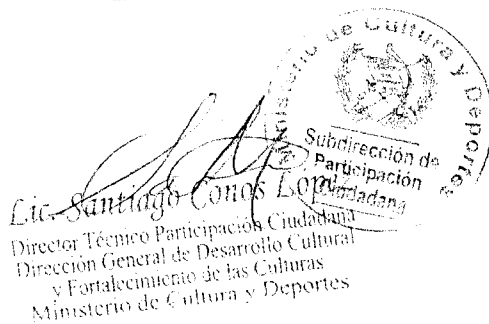 Ministerio de Cultura y Deportes
Subdirección de
Participación
Ciudadana
Lic. Santiago Conos López
Director Técnico Participación Ciudadana
Dirección General de Desarrollo Cultural
y Fortalecimiento de las Culturas
Ministerio de Cultura y Deportes